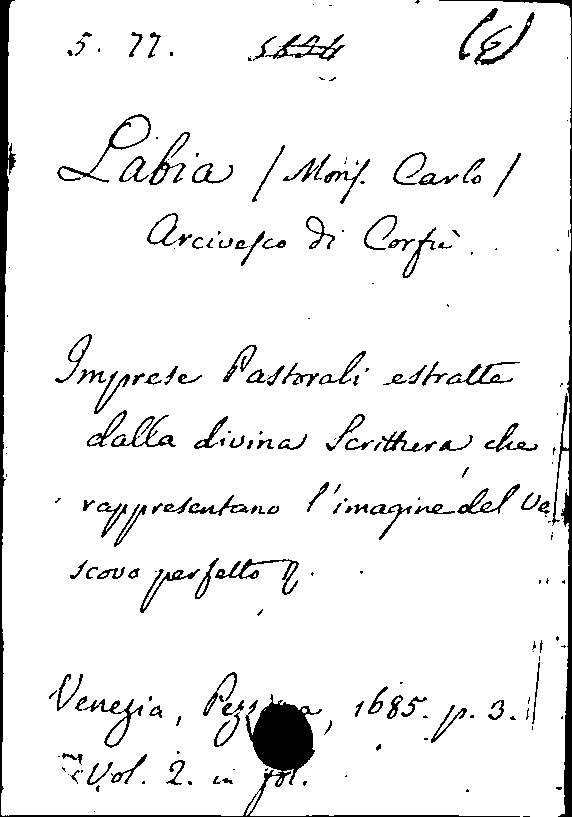 5. 77. 5654 (E)
Labia / Mons. Carlo /
Arcivesco di Corfù.
Imprese Pastorali estratte
dalla divina Scritthura che
rappresentano l'imagine del Ve
scovo perfetto
Venezia, 1685. p. 3.
Vol. 2. in fol.